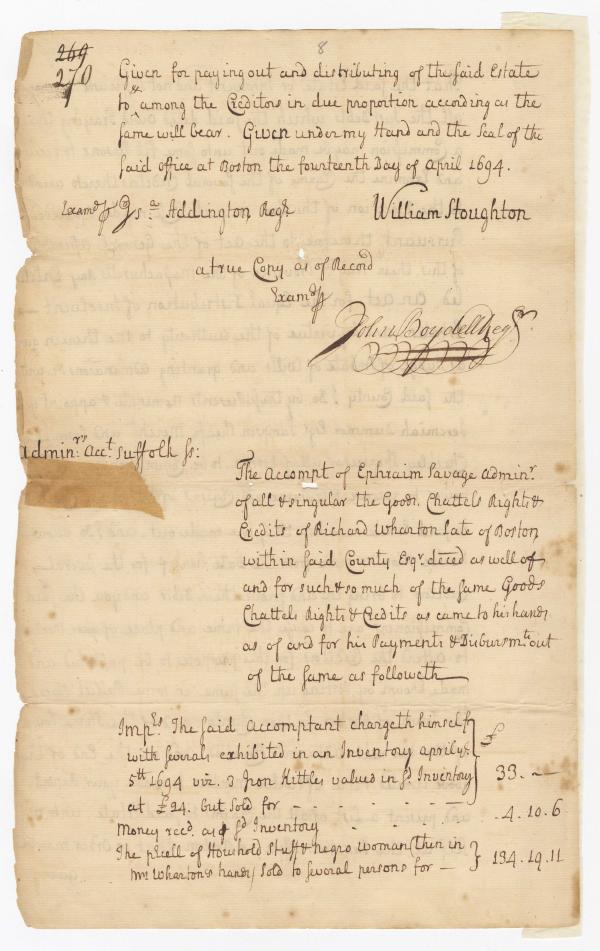 8
269
270
Given for paying out and distributing of the said Estate
to & among the Creditors in due proportion according as the
same will bear. Given under my Hand and the Seal of the
said office at Boston the fourteenth Day of April 1694.
Examd p Js:a Addington Regr William Stoughton
a true Copy as of Record
Examd p
John Boydell Regr
Adminrs Acct. Suffolk ss:
The Accompt of Ephraim Savage Adminr.
of all & singular the Goods. Chattels Rights &
Credits of Richard Wharton Late of Boston
within said County Esqr. deced as well of
and for such & so much of the same Goods
Chattels Rights & Credits as came to his hands
as of and for his Payments & Disbursmts out
of the same as followeth
Imprs The said Accomptant chargeth himself £
with severals exhibited in an Inventory april ye
5th 1694 viz. 3 Iron Kittles valued in sd Inventory 33. - -
at £24. but sold for - - - - - -
Money recd. as p sd Inventory - - - 4. 10. 6
The pcell of Houshold Stuff & negro woman (then in
Mrs Whartons hands) sold to several persons for — 134. 19. 11